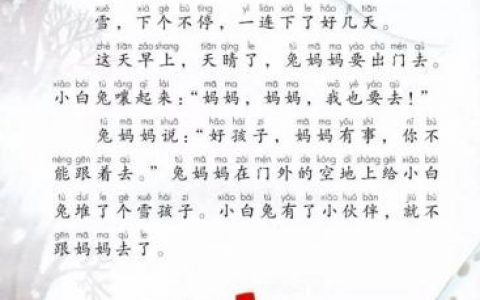 xuě xià gè bù tíng yì lián xià le hǎo jǐ tiān
雪，下个不停，一连下了好几天。
zhè tiān zǎo shang tiān qíng le tù mā ma yào chū mén qù
这天早上，天晴了，兔妈妈要出门去。
xiǎo bái tù rǎng qǐ lái mā ma mā ma wǒ yě yào qù
小白兔嚷起来：“妈妈，妈妈，我也要去！”
tù mā ma shuō hǎo hái zi mā ma yǒu shì nǐ bù
兔妈妈说：“好孩子，妈妈有事，你不
néng gēn zhe qù tù mā ma zài mén wài de kòng dì shàng gěi xiǎo bái
能跟着去。”兔妈妈在门外的空地上给小白
tù duī le gè xuě hái zi xiǎo bái tù yǒu le xiǎo huǒ bàn jiù bù
兔堆了个雪孩子。小白兔有了小伙伴，就不
gēn mā ma qù le
跟妈妈去了。